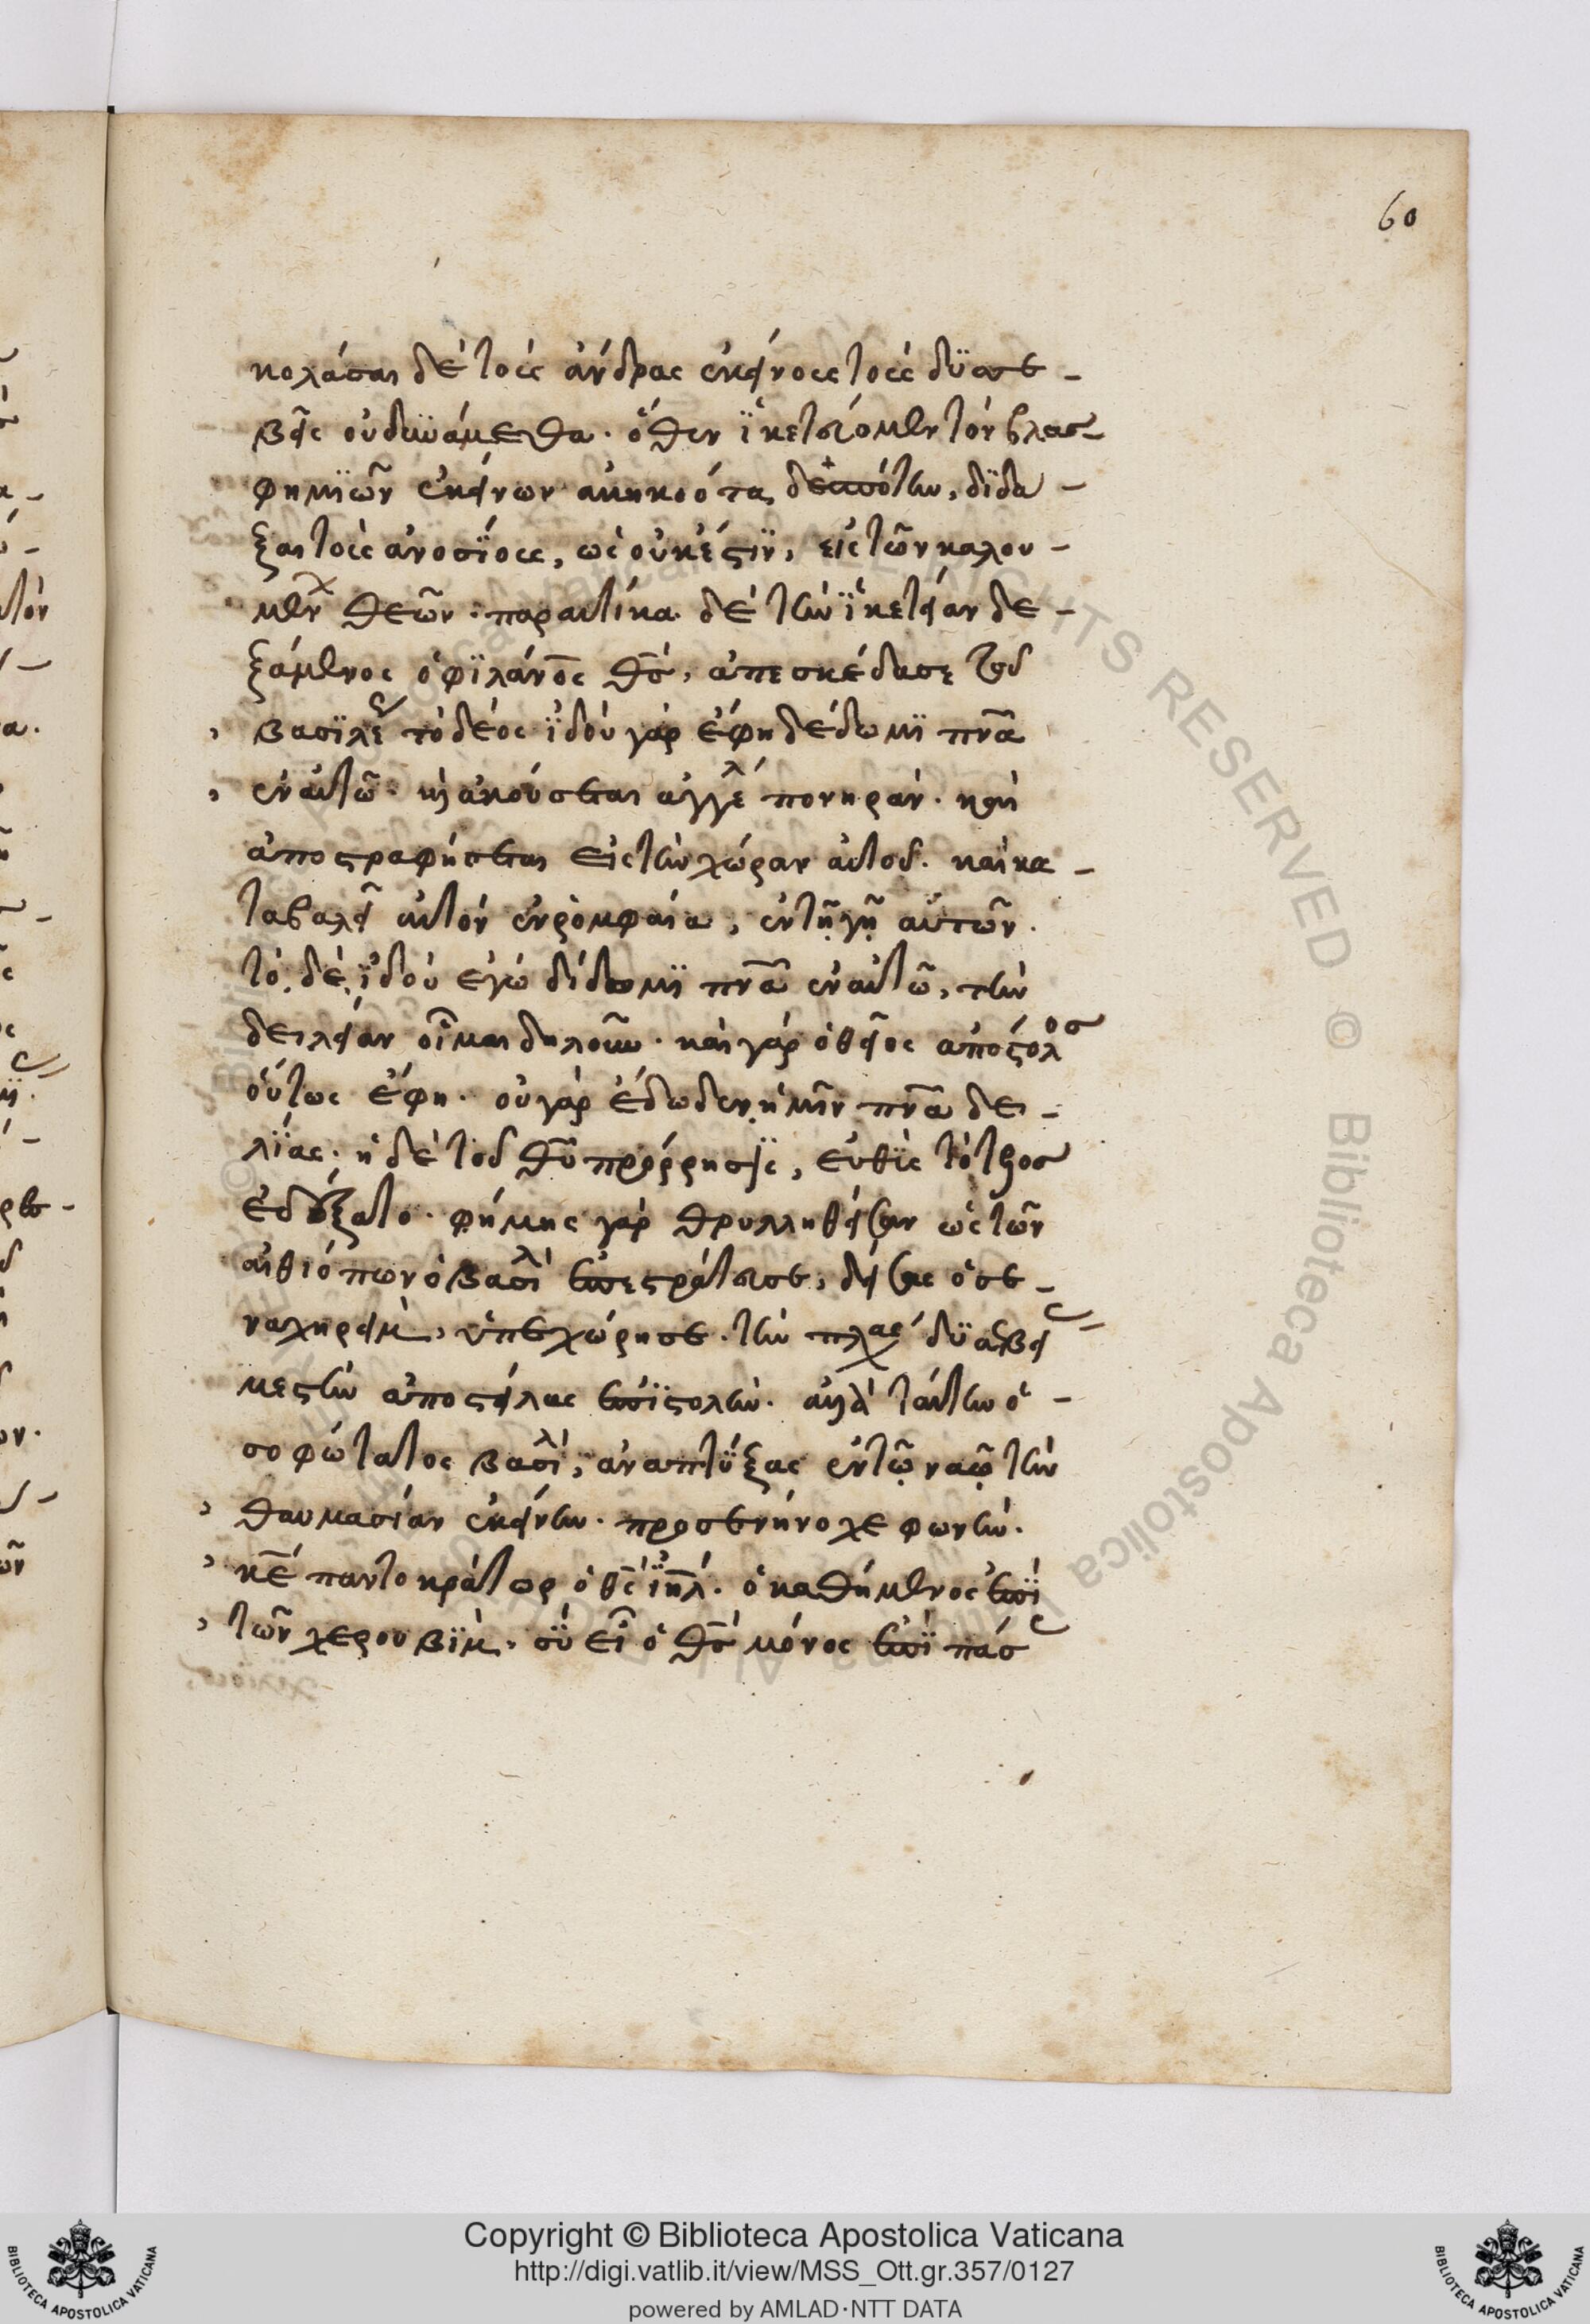 60
κολάσαι δὲ τοὺς ἄνδρας ἐκείνους τοὺς δυσσε-
βεῖς οὐ δυνάμεθα· ὅθεν ἱκετεύομεν τὸν βλασ-
φημιῶν ἐκείνων ἀκηκοότα δεσπότην, διδά-
ξαι τοὺς ἀνοσίους, ὡς οὐκ ἔστιν, εἷς τῶν καλου-
μένων θεῶν· παραυτίκα δὲ τὴν ἱκετείαν δε-
ξάμενος ὁ φιλάνος θς, ἀπεσκέδασε τοῦ
βασιλέως τὸ δέος ἰδοὺ γὰρ ἔφη δέδωμι πνα
ἐν αὐτῷ· κὶ ἀκούσεται ἀγγελ πονηράν· καὶ
ἀποστραφήσεται εἰς τὴν χώραν αὐτοῦ· καὶ κα-
ταβαλεῖ αὐτὸν ἐν ῥομφαία, ἐν τῇ γῇ αὐτῶν·
τὸ δὲ ἰδοὺ ἐγὼ δίδωμι πνα ἐν αὐτῶ, τὴν
δειλείαν οἶμαι δηλοῦν· καὶ γὰρ ὁ θεῖος ἀπόστολος
οὕτως ἔφη· οὐ γὰρ ἔδωκεν ἡμῖν πνα δει-
λίας· ἡ δὲ τοῦ θυ πρόρρησις, εὐθὺς τὸ τέλος
ἐδέξατο· φήμης γὰρ θρυλληθείσης ὡς τῶν
αἰθιόπων ὁ βασιλ ἐπεστράτευσε, δείσας ὁ σε-
ναχηρείμ, ὑπεχώρησε· τὴν πλας δυσσεβείας
μεστὴν ἀποστείλας ἐπιστολήν· ἀλλὰ ταύτην ὁ
σοφώτατος βασιλ, ἀναπτύξας ἐν τῷ ναῷ τὴν
θαυμασίαν ἐκείνην· προσενήνοχε φωνήν·
κε παντοκράτωρ ὁ θς ιηλ· ὁ καθήμενος ἐπὶ
τῶν χερουβίμ· σὺ εἶ ὁ θς μόνος ἐπὶ πάσ
Copyright © Biblioteca Apostolica Vaticana
http://digi.vatlib.it/view/MSS_Ott.gr.357/0127
powered by AMLAD·NTT DATA